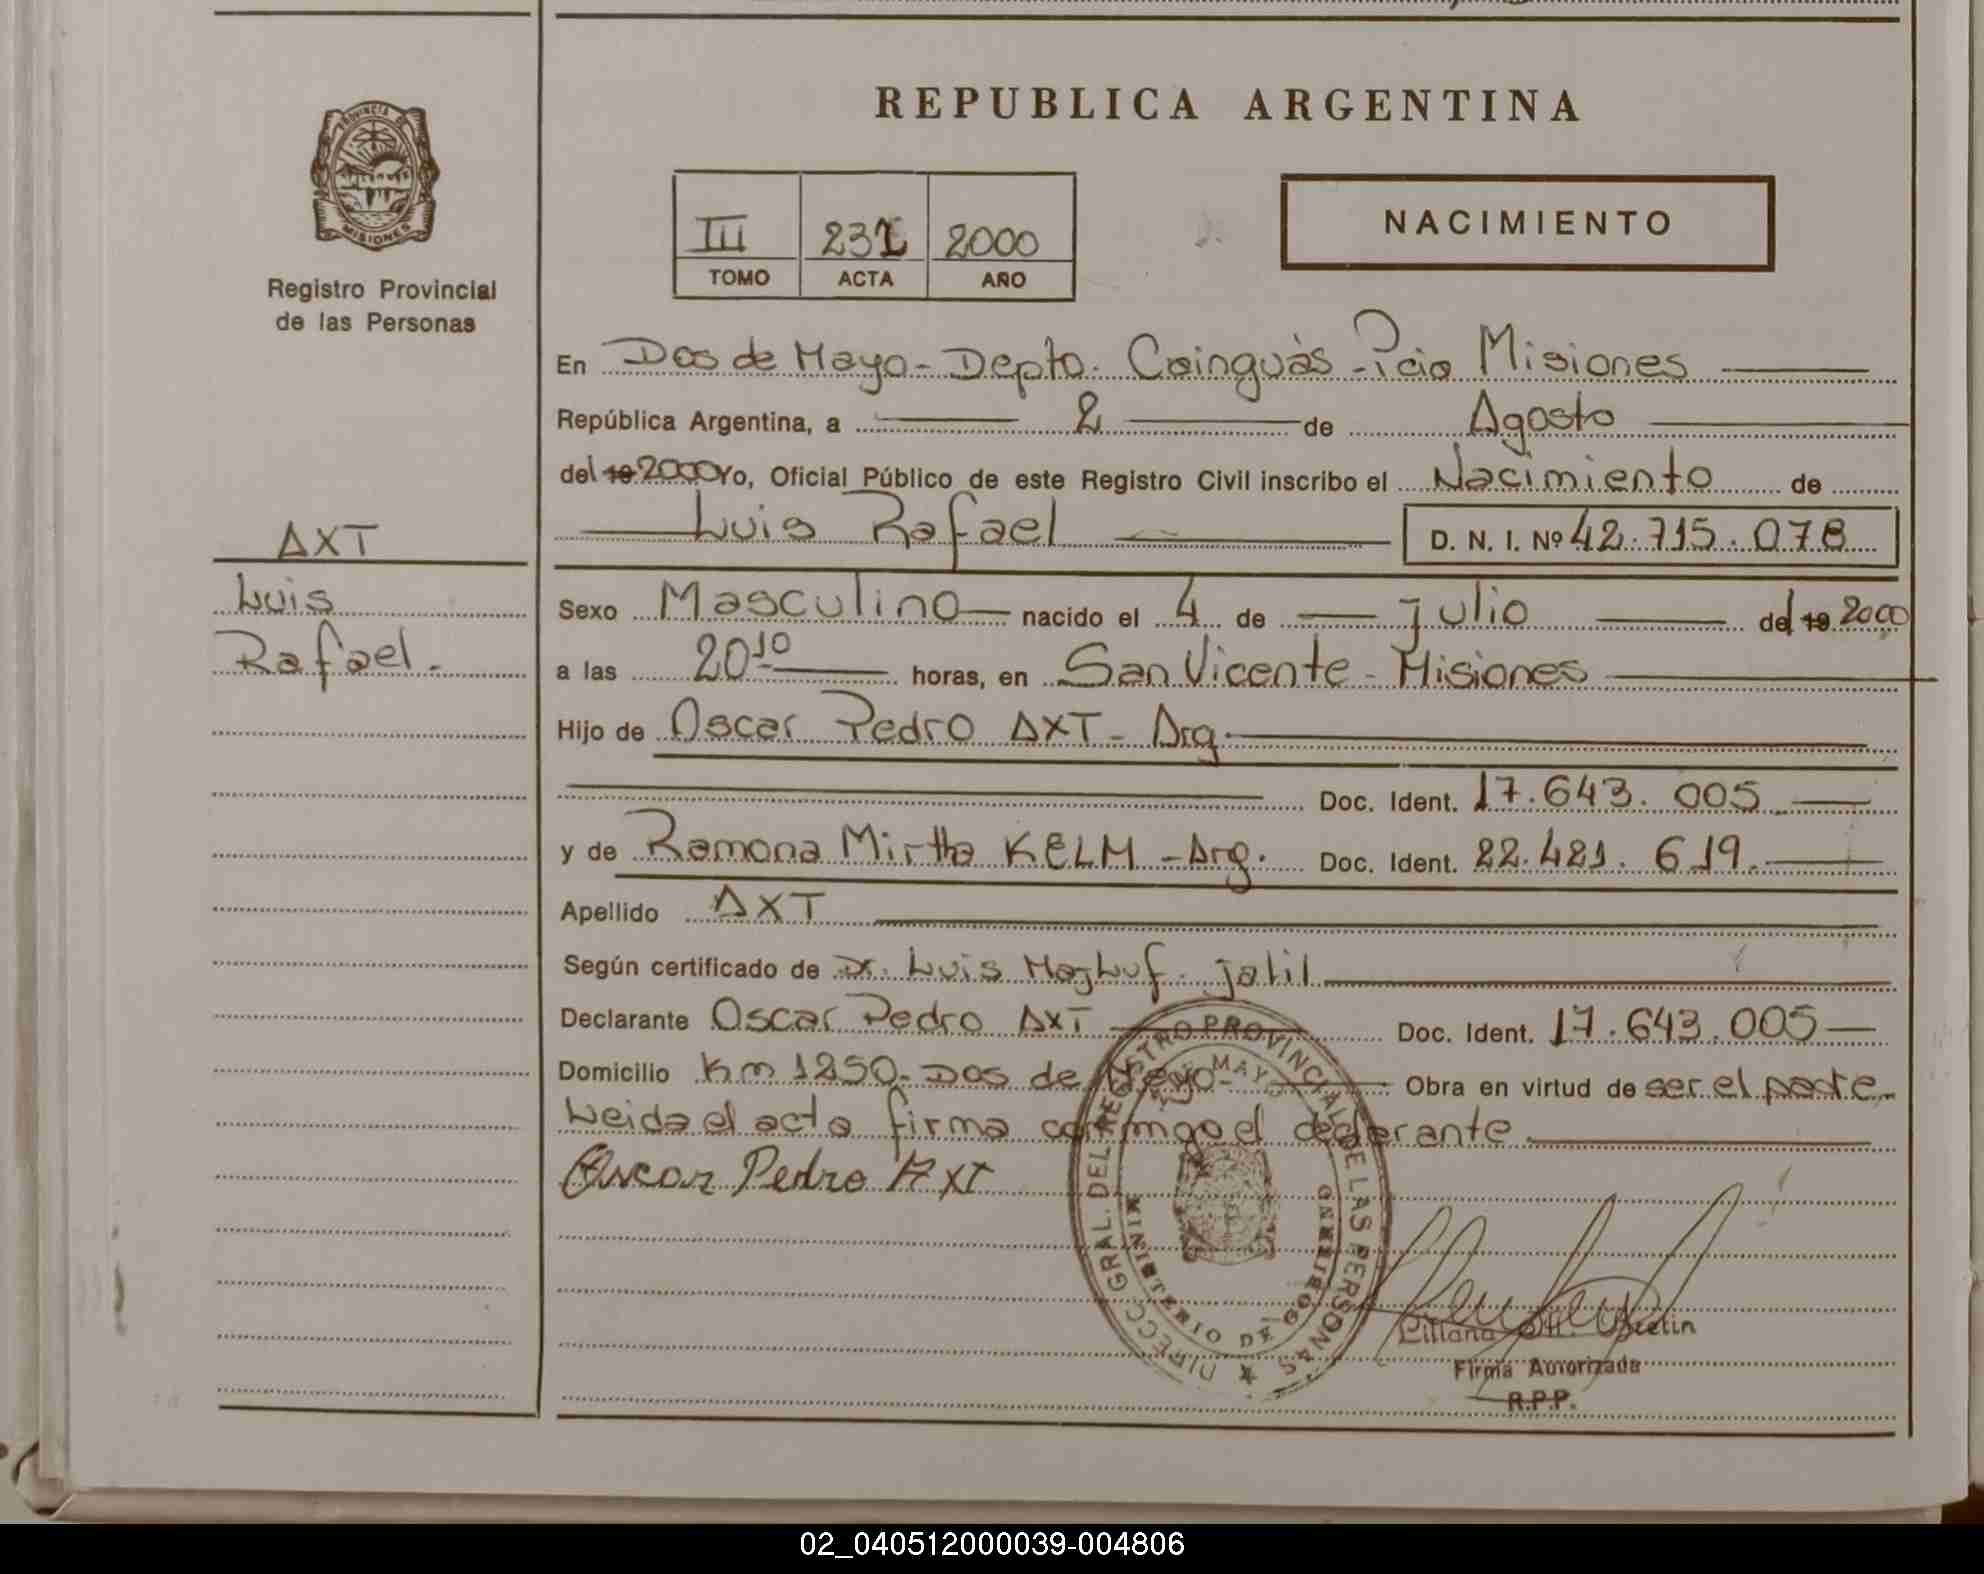 REPUBLICA ARGENTINA
PROVINCIA DE
MISIONES
Registro Provincial
de las Personas
III 231 2000
TOMO ACTA AÑO
NACIMIENTO
En Dos de Mayo - Depto. Cainguás - Pcia Misiones
República Argentina, a 2 de Agosto
del 19 2000 Yo, Oficial Público de este Registro Civil inscribo el Nacimiento de
Luis Rafael D. N. I. Nº 42.715.078
AXT
Luis
Rafael.
Sexo Masculino nacido el 4 de Julio del 19 2000
a las 20¹⁰ horas, en San Vicente - Misiones
Hijo de Oscar Pedro AXT - Arg.
Doc. Ident. 17.643.005
y de Ramona Mirtha KELM - Arg. Doc. Ident. 22.421.619.
Apellido AXT
Según certificado de Dr. Luis Jalil
Declarante Oscar Pedro AXT Doc. Ident. 17.643.005
Domicilio Km 1250 - Dos de Mayo - Obra en virtud de ser el padre.
Leida el acta firma conmigo el declarante
Oscar Pedro AXT
DIRECC. GRAL. DEL REGISTRO PROVINCIAL DE LAS PERSONAS
MINISTERIO DE GOBIERNO
MAYO
Liliana
Firma Autorizada
R.P.P.
02_040512000039-004806